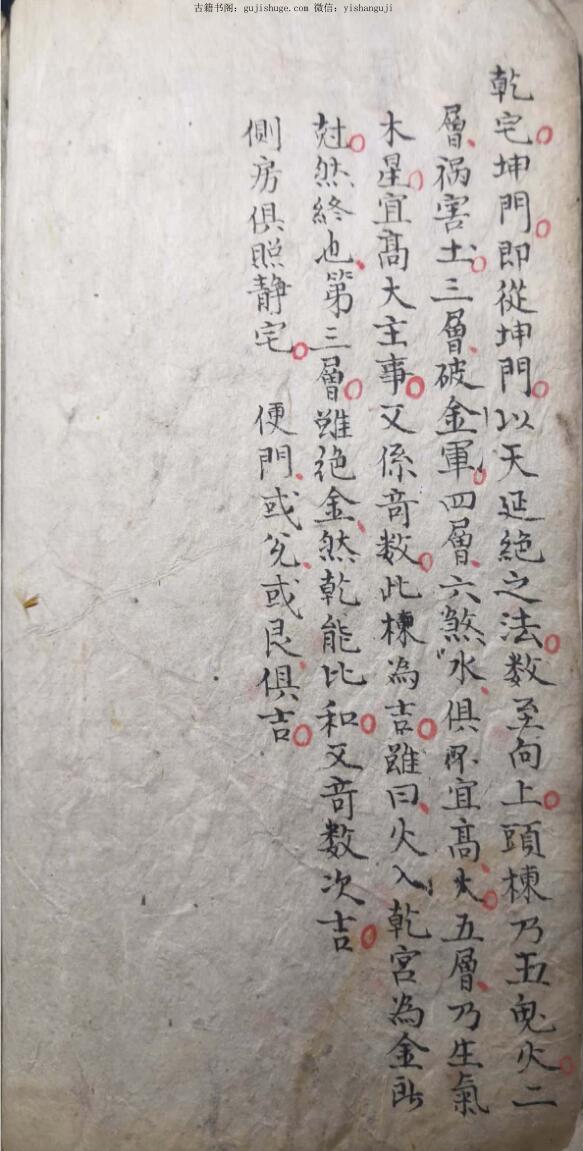 古籍书阁：gujishuge.com 微信：yishanguji
乾宅坤門即從坤門以天延絕之法数至向上頭棟乃五鬼火二
層祸害土三層破金軍四層六煞水俱不宜髙大五層乃生氣
木星宜髙大主事又係竒数此棟為吉雖曰火入乾宮為金所
尅然終也第三層雖绝金然乾能比和又竒數次吉
側房俱照靜宅 便門或兊或艮俱吉